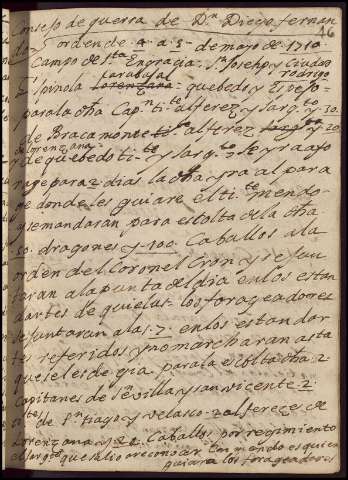 Consejo de guerra de Dⁿ Diego fernan
46
do orden de 4 a 5 de mayo de 1710
Campo de Sta Engracia Sn Joseph y Ciudad
rodrigo
Spinola Lorenzana quebedo y
para la dha Capn tite alferez y sargto 30
de Bracamonte alferez 20
Lorenzana
y de quebedo tite y sargto
rage para 2 dias la
ge donde les guiare el tite mendo
q se mandaran para escolta de la dha
50 dragones y 100 Caballos a la
orden del Coronel Orin y se Jun
taran a la punta del dia en los estan
dartes de quielas los forageadores
se Juntaran a las 7 en los estandar
tes referidos y no marcharan asta
que se les de gia para la escolta dha 2
Capitanes de Sevilla y san vicente 2
tes de Sntiago y Velasco 2 alfereces de
Lorenzana y 22 Caballos por regimiento
el sargto que salio a reconocer mendo es quien
guiara los forageadores